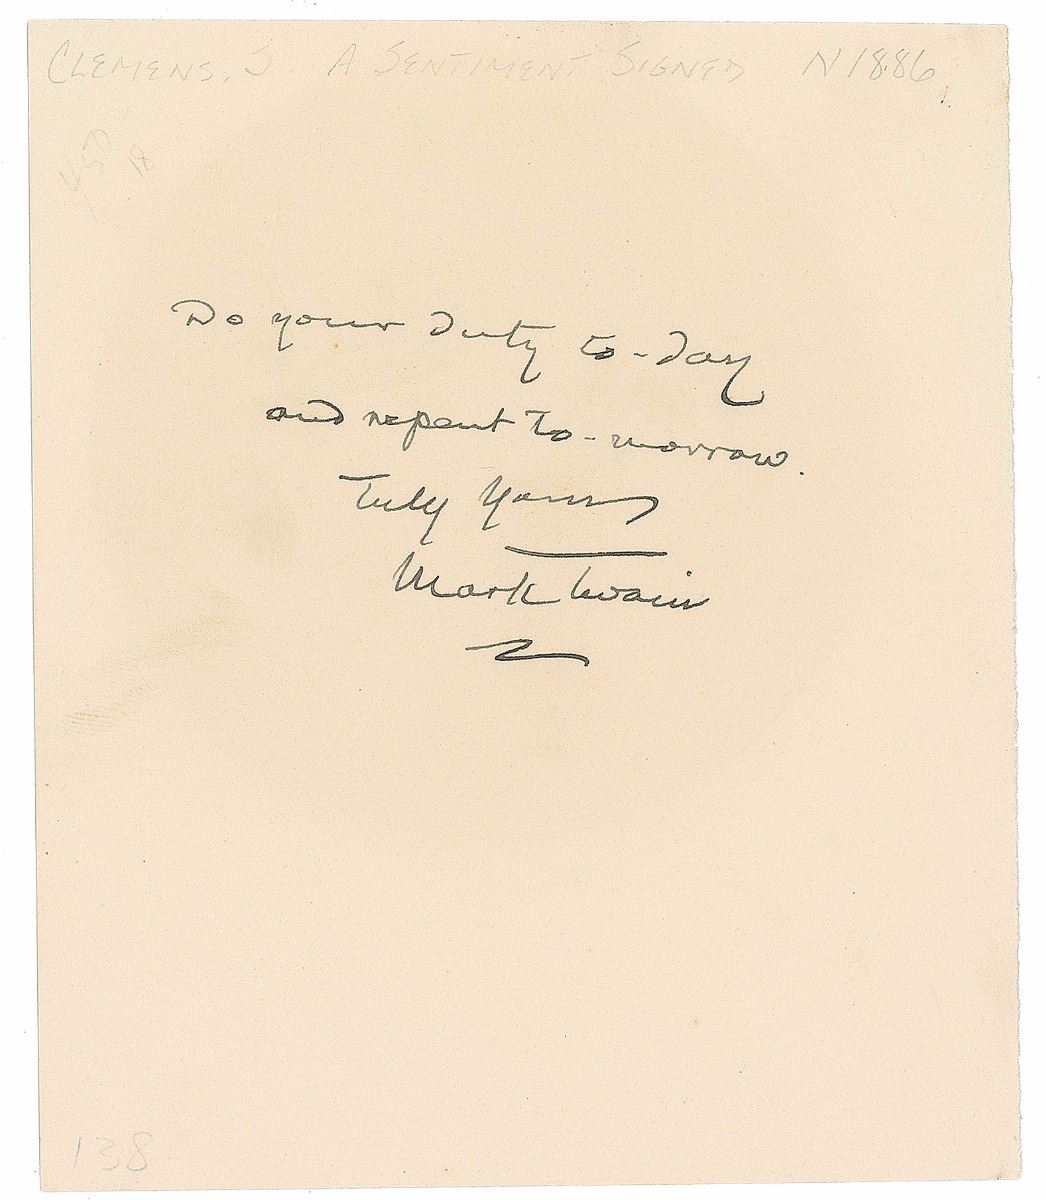 CLEMENS, S A SENTIMENT SIGNED N1886
450
18
Do your duty to-day
and repent to-morrow.
Truly Yours
Mark Twain
138